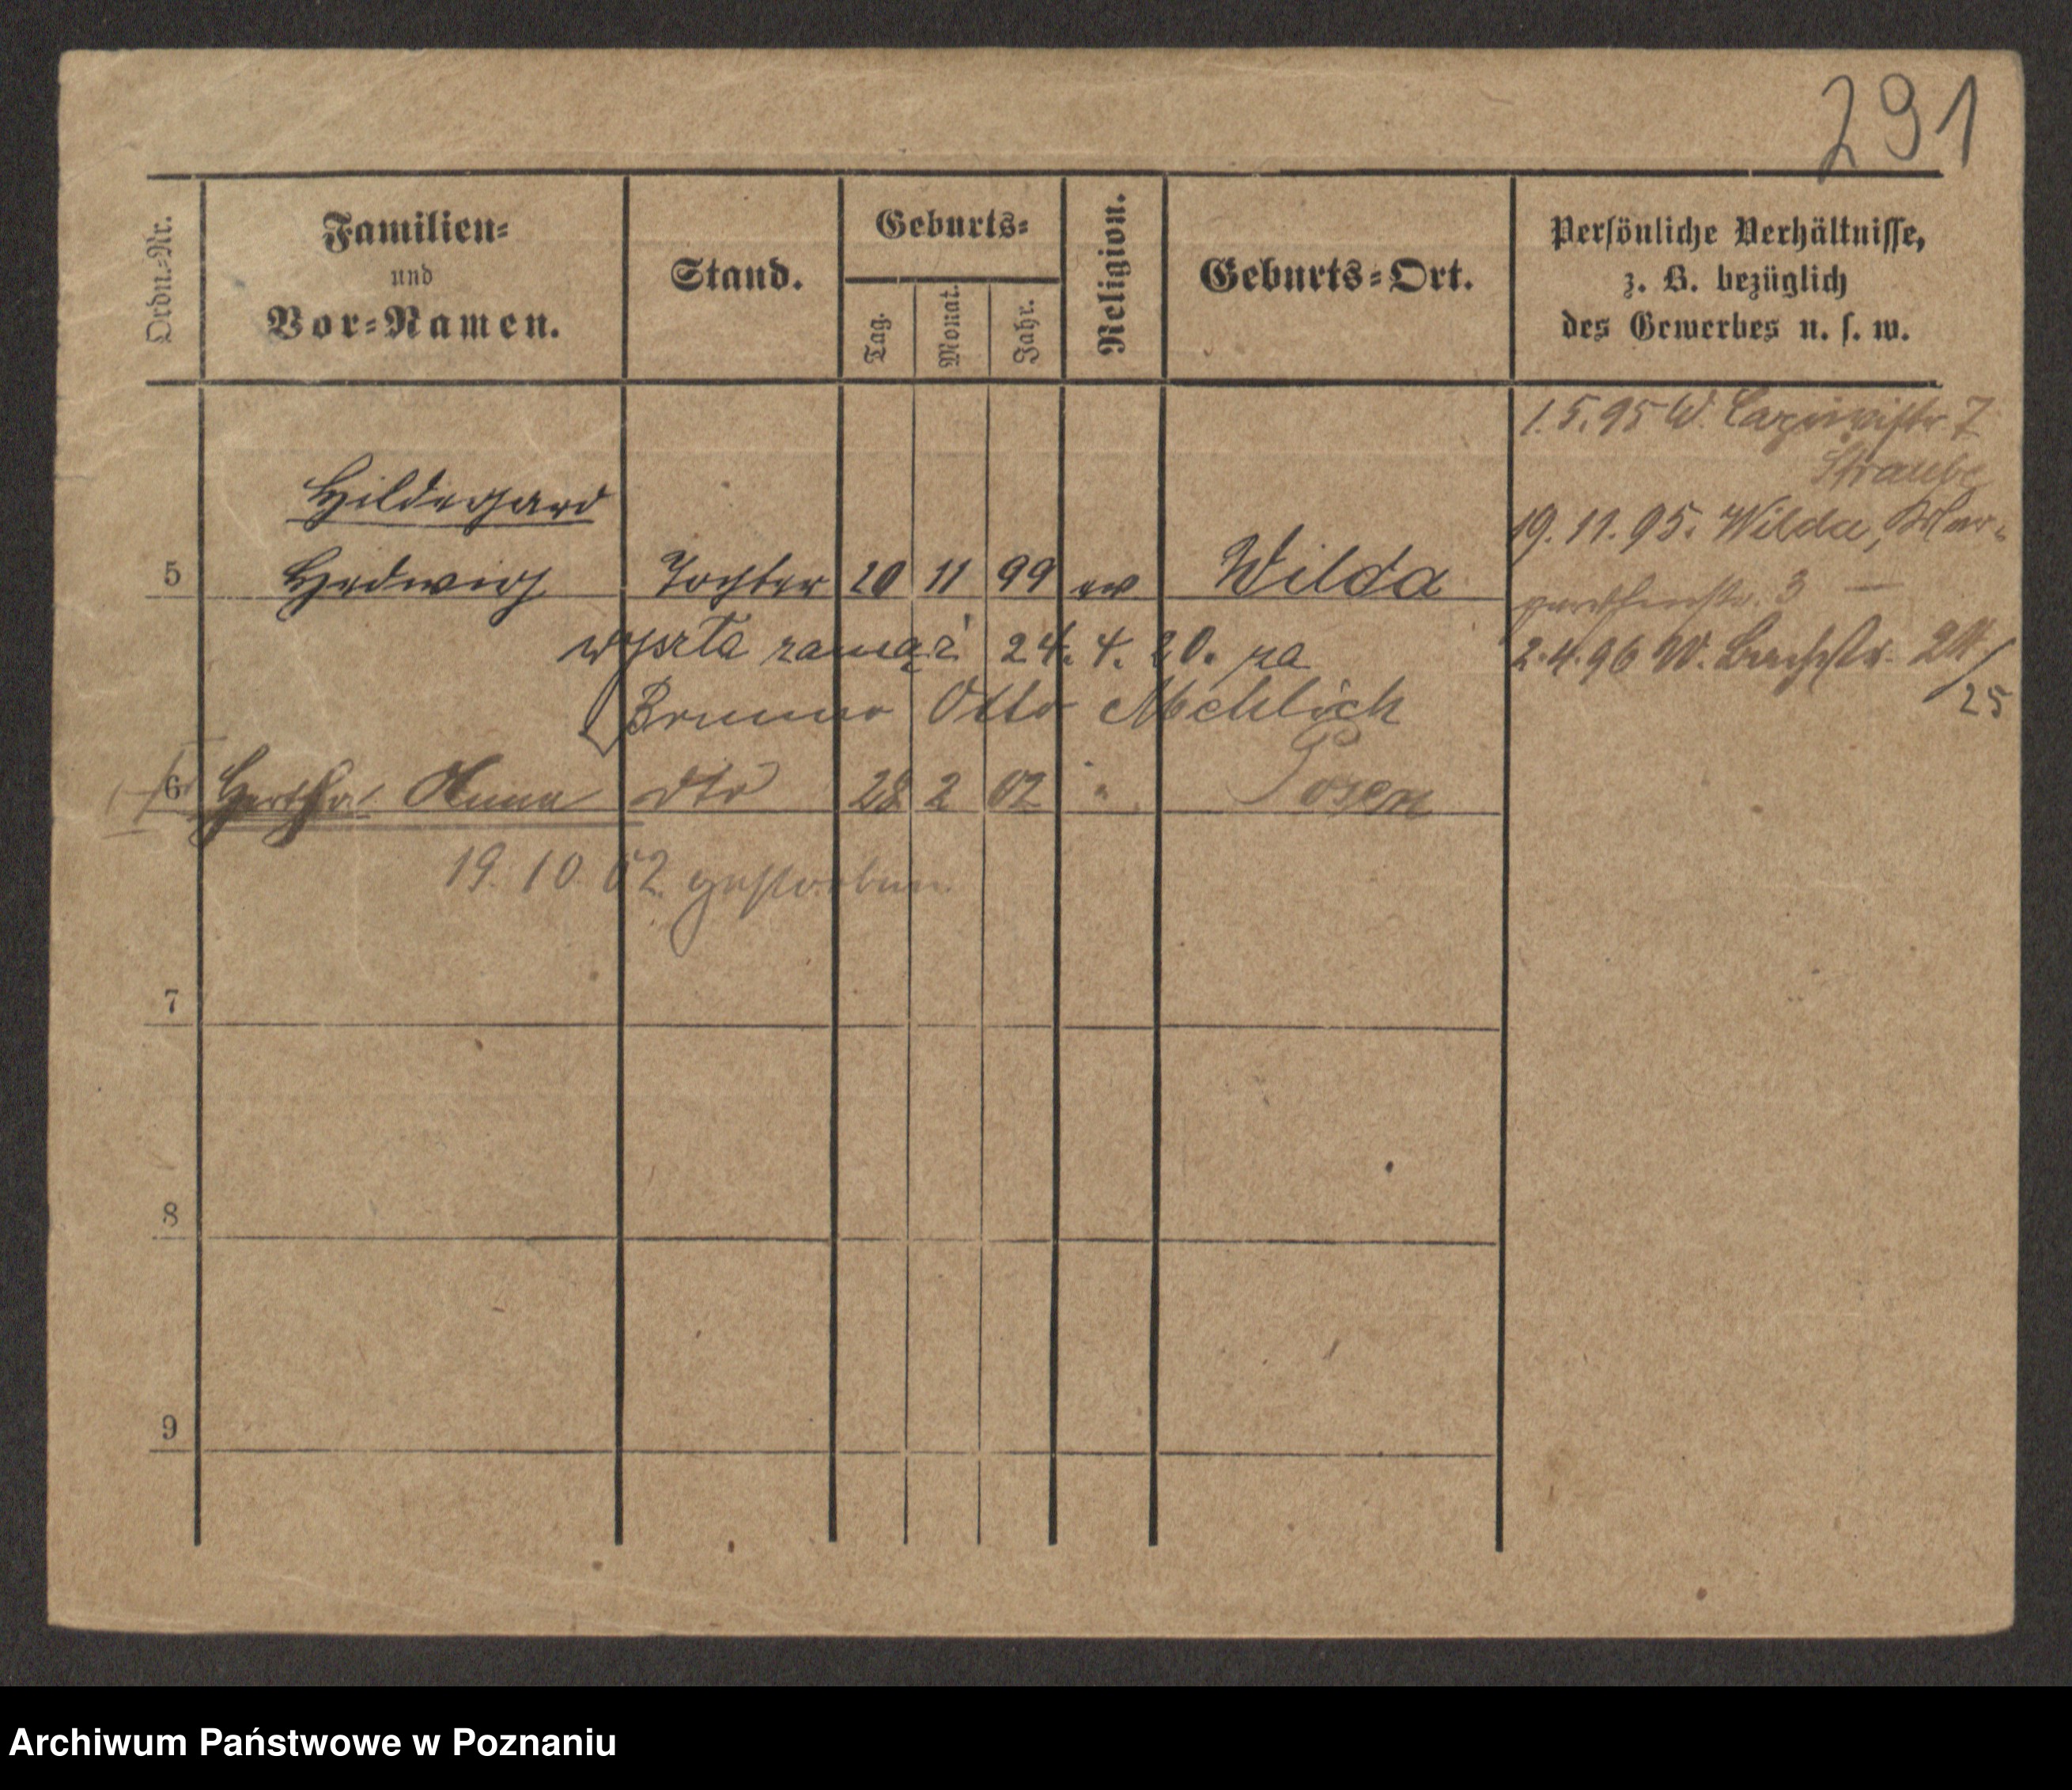 291
Ordn.-Nr.
Familien-
und
Vor-Namen.
Stand.
Geburts-
Tag.
Monat.
Jahr.
Religion.
Geburts-Ort.
Persönliche Verhältnisse,
z. B. bezüglich
des Gewerbes u. s. w.
1.5.95 W. 7
Straube
19.11.95. Wilda, Mar-
garethenstr. 3 —
2.4.96 W. Bachstr. 24/
25
Hildegard
5 Hedwig Tochter 20 11 99 ev Wilda
wyszła zamąż 24. 4. 20. za
Bruno Otto Mehlich
6 Hertha Anna dto 28 2 02 " Posen
19. 10 02 gestorben.
7
8
9
Archiwum Państwowe w Poznaniu